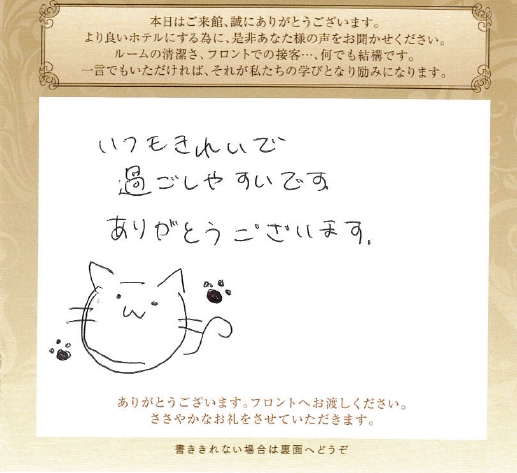 本日はご来館、誠にありがとうございます。
より良いホテルにする為に、是非あなた様の声をお聞かせください。
ルームの清潔さ、フロントでの接客…、何でも結構です。
一言でもいただければ、それが私たちの学びとなり励みになります。
いつもきれいで
過ごしやすいです
ありがとうございます。
ありがとうございます。フロントへお渡しください。
ささやかなお礼をさせていただきます。
書ききれない場合は裏面へどうぞ